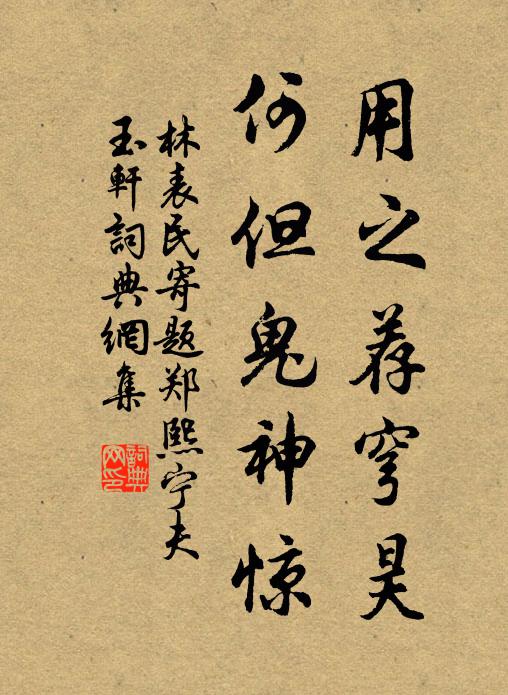 用之荐穹昊
何但鬼神惊
林表民寄题郑熙宁夫
玉軒詞典網集
詞典網印